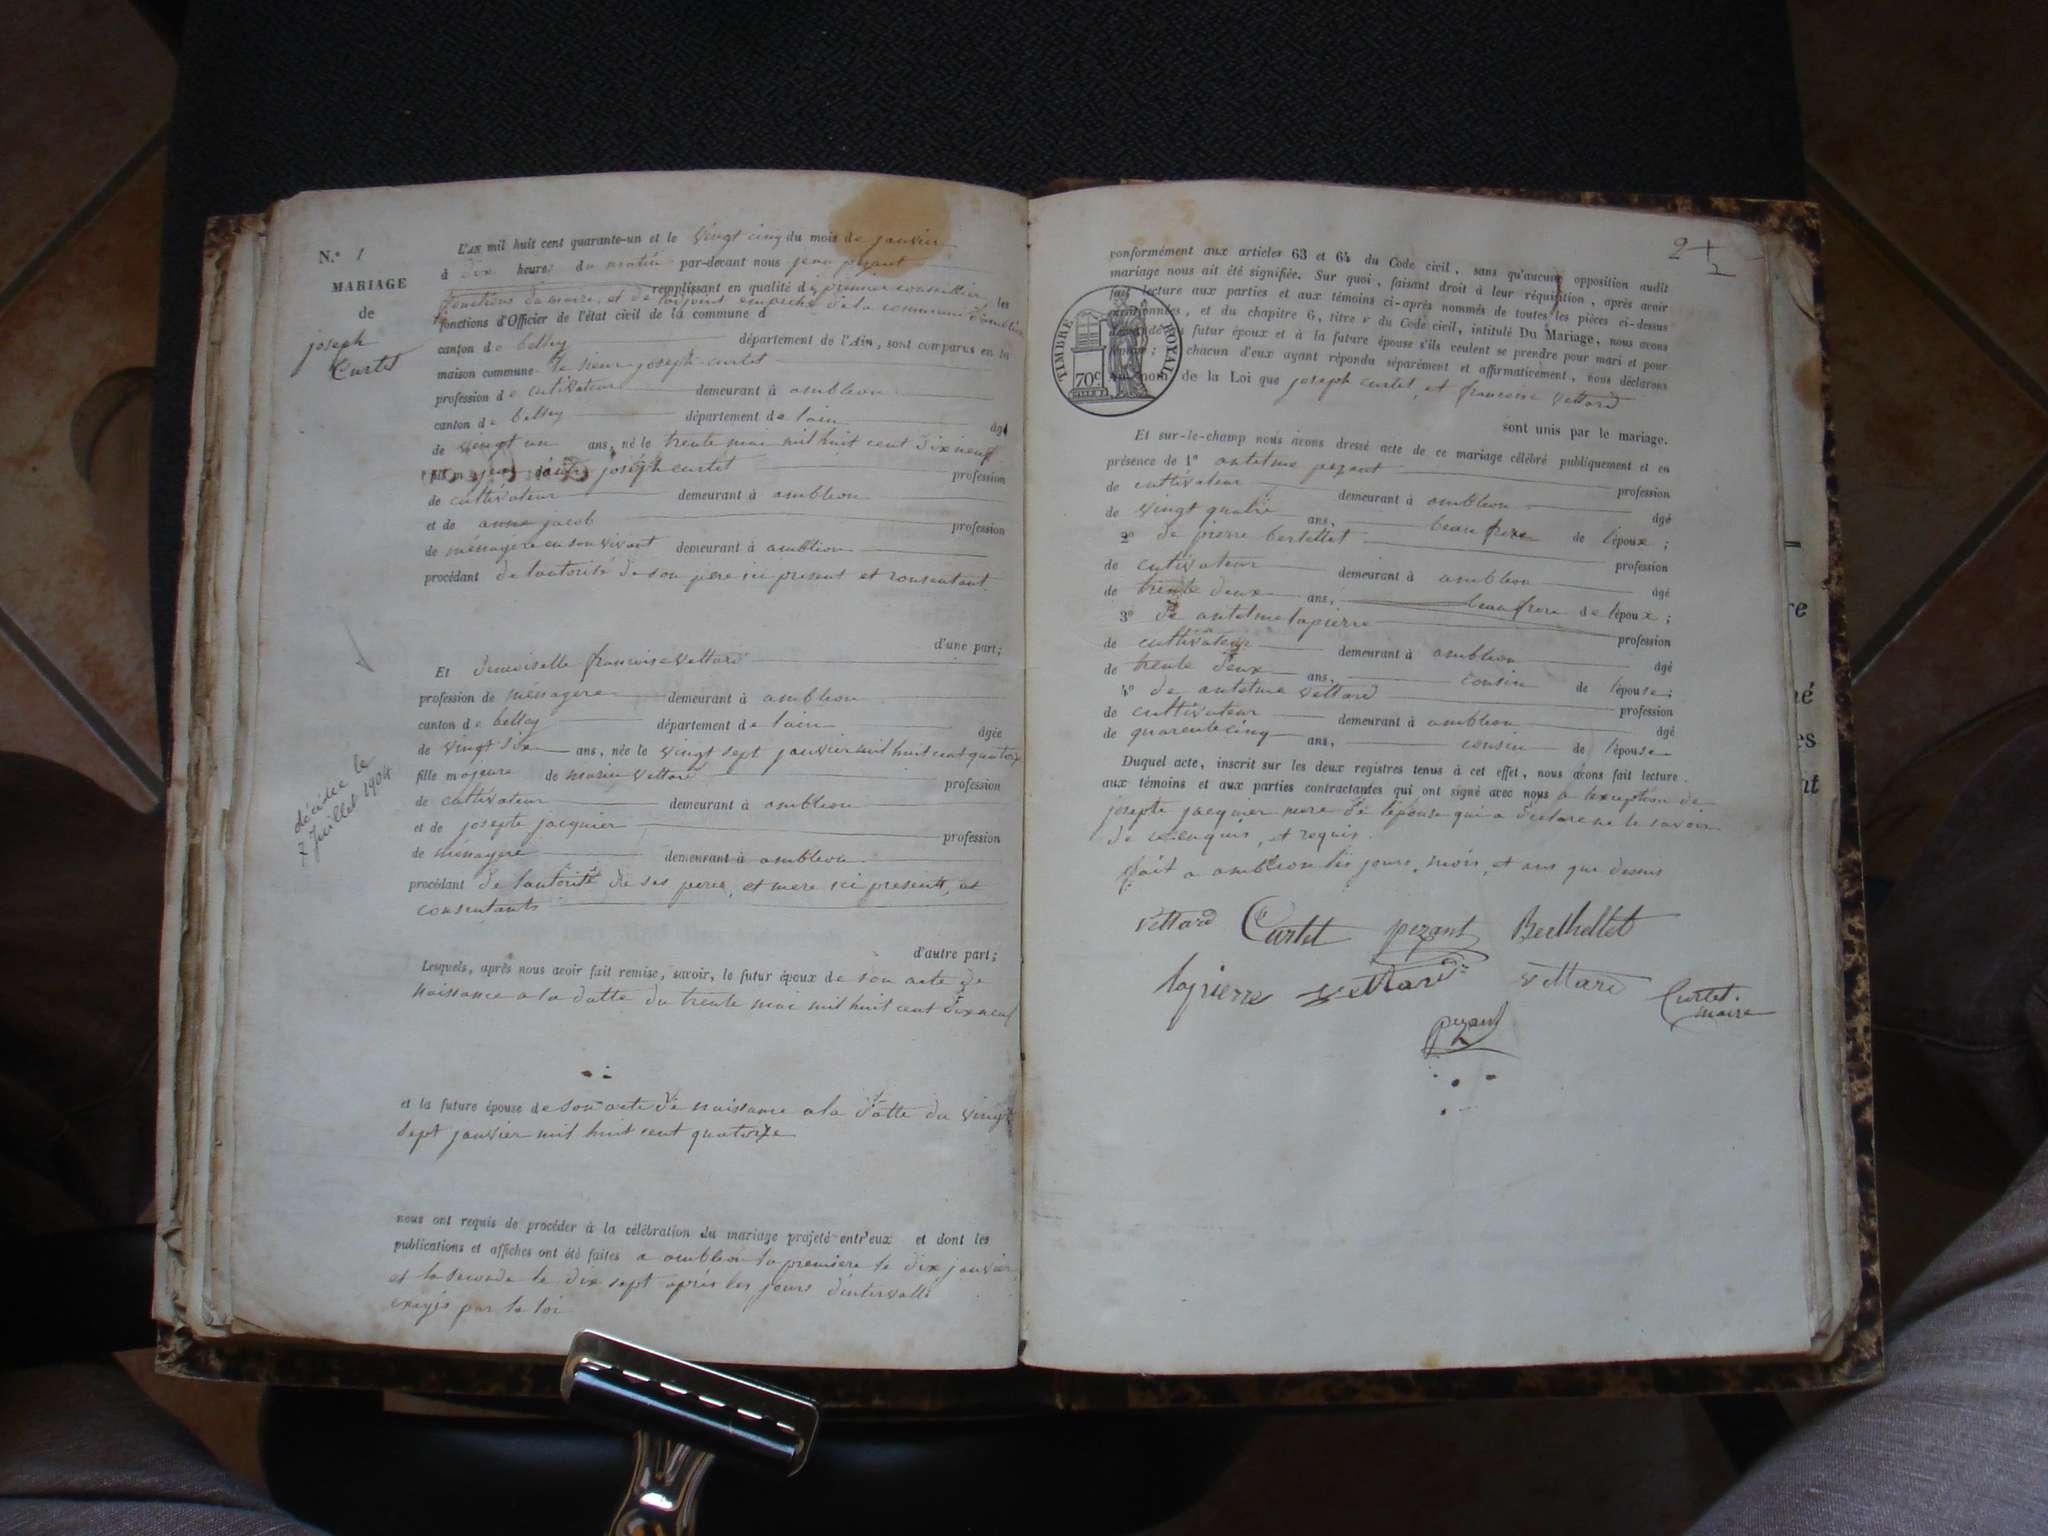 N.º 1
MARIAGE
de
joseph
Curtet
L'AN mil huit cent quarante-un et le vingt cinq du mois de janvier
à dix heures du matin par-devant nous jean pezant
remplissant en qualité de premier conseiller les
fonctions du maire, et de l'adjoint empeché de la commune d'amblion
fonctions d'Officier de l'état civil de la commune d
canton de belley département de l'Ain, sont comparus en la
maison commune le sieur joseph curtet
profession de cutivateur demeurant à amblion
canton de belley département de lain âgé
de vingt un ans, né le trente mai mil huit cent dix neuf
fils joseph curtet profession
de cultivateur demeurant à amblion
et de anne jacob profession
de ménagère en son vivant demeurant à amblion
procédant de lautorité de son père ici present et consentant
d'une part;
Et demoiselle francoise vettard
profession de ménagere demeurant à amblion
canton de belley département de lain âgée
de vingt six ans, née le vingt sept janvier mil huit cent quatorze
fille majeure de marin vettard profession
de cultivateur demeurant à amblion
et de josepte jacquier profession
de ménagere demeurant à amblion
procédant de lautorité de ses pere, et mere ici presents, et
consentants
d'autre part;
décédée le
7 Juillet 1904
Lesquels, après nous avoir fait remise, savoir, le futur époux de son acte de
naissance a la datte du trente mai mil huit cent dix neuf
et la future épouse de son acte de naissance a la datte du vingt
sept janvier mil huit cent quatorze
nous ont requis de procéder à la célébration du mariage projeté entr'eux et dont les
publications et affiches ont été faites a amblion la premiere le dix janvier
et la seconde le dix sept après les jours d'intervalle
exigés par la loi
2
2
conformément aux articles 63 et 64 du Code civil, sans qu'aucune opposition audit
mariage nous ait été signifiée. Sur quoi, faisant droit à leur réquisition, après avoir
fait lecture aux parties et aux témoins ci-après nommés de toutes les pièces ci-dessus
mentionnées, et du chapitre 6, titre v du Code civil, intitulé Du Mariage, nous avons
demandé au futur époux et à la future épouse s'ils veulent se prendre pour mari et pour
femme; chacun d'eux ayant répondu séparément et affirmativement, nous déclarons
au nom de la Loi que joseph curtet, et francoise vettard
TIMBRE ROYAL
70c
sont unis par le mariage.
Et sur-le-champ nous avons dressé acte de ce mariage célébré publiquement et en
présence de 1º antelme pezant profession
de cultivateur demeurant à amblion âgé
de vingt quatre ans, beau frere de l'époux;
2º de pierre bertettet profession
de cutivateur demeurant à amblion âgé
de trente deux ans, beau frere de l'époux;
3º de antelme lapierre profession
de cultivateur demeurant à amblion âgé
de trente deux ans, cousin de l'épouse;
4º de antelme vettard profession
de cultivateur demeurant à amblion âgé
de quarente cinq ans, cousin de l'épouse
Duquel acte, inscrit sur les deux registres tenus à cet effet, nous avons fait lecture
aux témoins et aux parties contractantes qui ont signé avec nous a lexception de
josepte jacquier mere de l'épouse qui a declaré ne le savoir
de ce enquis, et requis.
fait a amblion les jours, mois, et ans que dessus
vettard Curtet pezant Berthellet
lapierre vettard vettard Curtet
maire
pezant